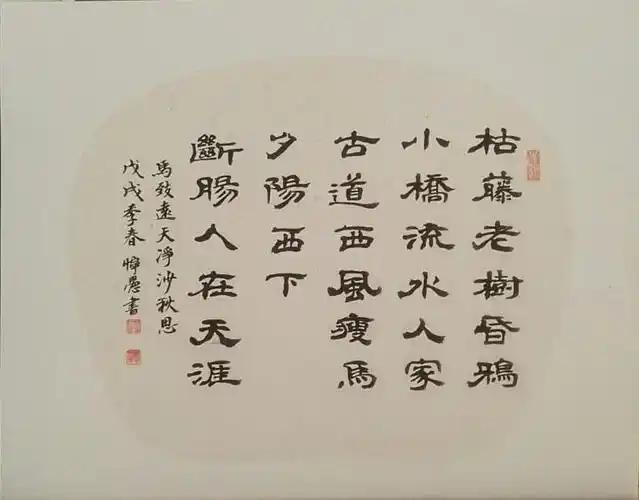 枯藤老樹昏鴉
小橋流水人家
古道西風瘦馬
夕陽西下
斷腸人在天涯
馬致遠天凈沙秋思
戊戌季春惇愚書